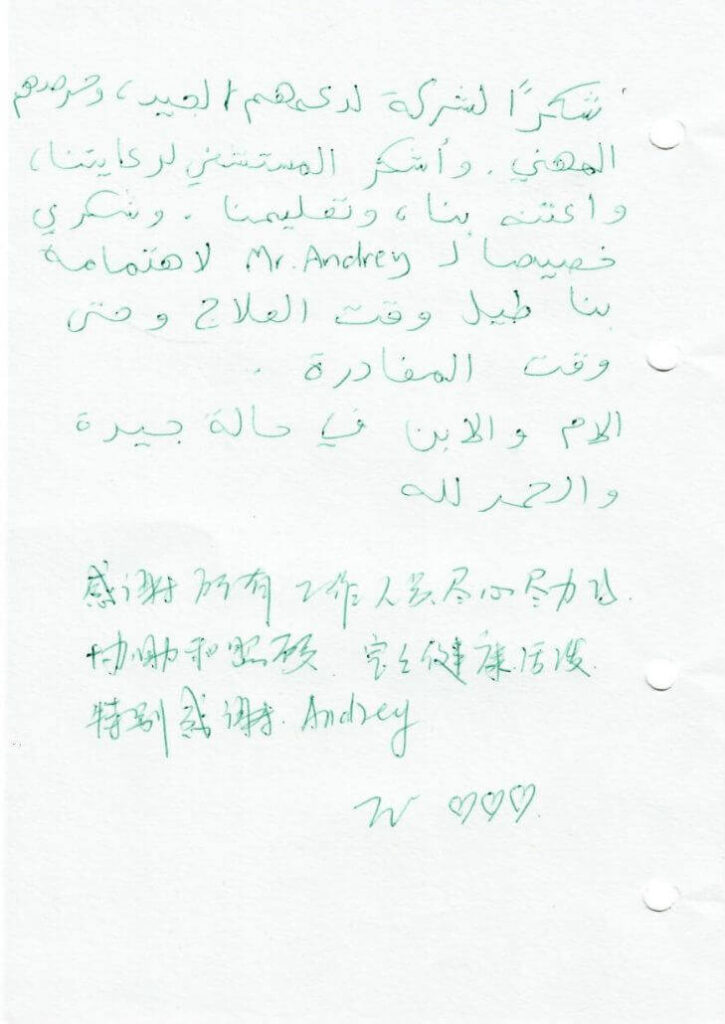 شكرًا لشركة لدعمهم الجيد، وحرصهم
المهني. وأشكر المستشفي لرعايتنا،
واعتنه بنا، وتعليمنا. وشكري
خصيصا لـ Mr. Andrey لاهتمامة
بنا طيل وقت العلاج وحتى
وقت المغادرة.
الام والابن في حالة جيدة
والحمد لله
感谢所有工作人员尽心尽力的
协助和照顾 宝宝健康活泼.
特别感谢. Andrey
♡♡♡.